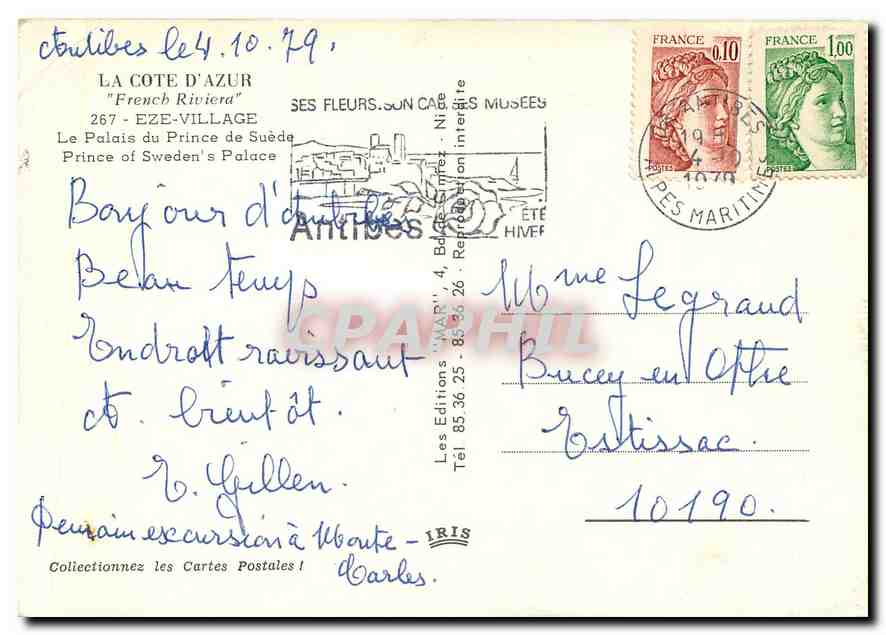 Antibes le 4.10.79.
LA COTE D'AZUR
"French Riviera"
267 - EZE-VILLAGE
Le Palais du Prince de Suède
Prince of Sweden's Palace
SES FLEURS. SON CAP. SES MUSEES
Antibes
ÉTÉ
HIVER
FRANCE
0,10
POSTES
FRANCE
1,00
POSTES
ANTIBES
19 H
4-10
1979
ALPES MARITIMES
Bonjour d'Antibes
Beau temps
Endroit ravissant
A bientôt.
E. Gillen.
Demain excursion à Monte-
Carles.
Collectionnez les Cartes Postales !
Les Editions "MAR", 4, Bd de Cimiez - Nice
Tél 85.36.25 - 85.36.26 - Reproduction interdite
IRIS
Mme Legrand
Bucey en Othe
Estissac.
10190.
CPAPHIL